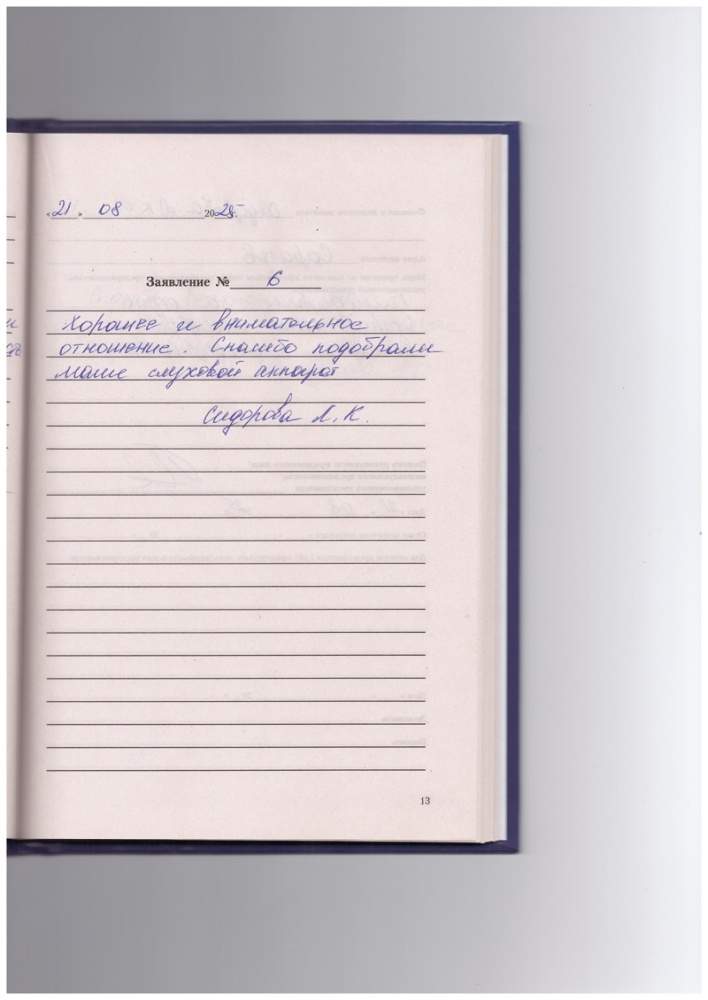 «21» 08 2025г.
Заявление № 6
Хорошее и внимательное
отношение. Спасибо подобрали
маме слуховой аппарат
Сидорова Л.К.
13